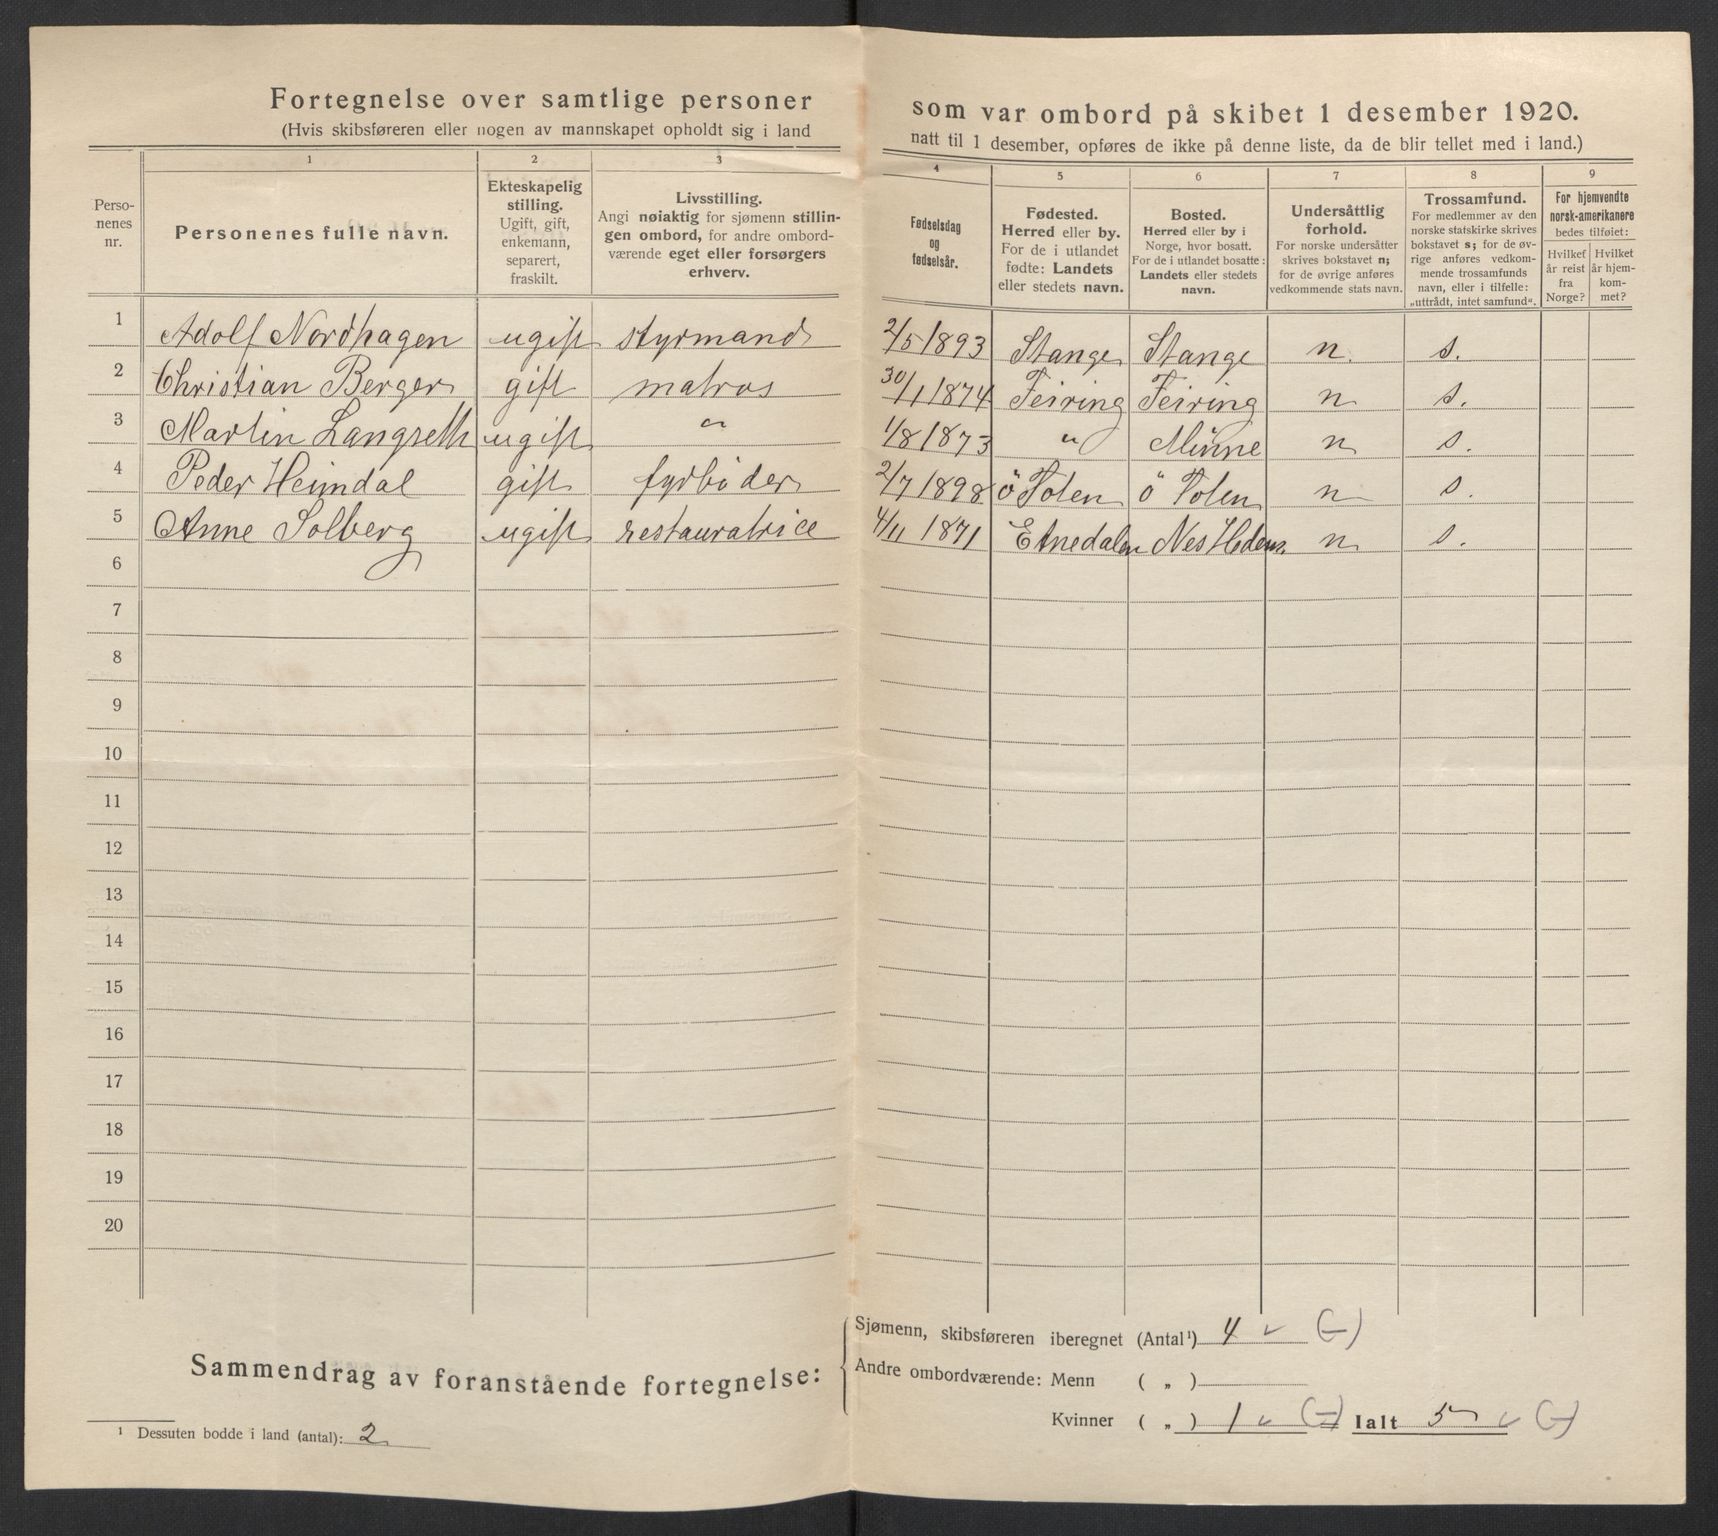 Fortegnelse over samtlige personer som var ombord på skibet 1 desember 1920.
(Hvis skibsføreren eller nogen av mannskapet opholdt sig i land natt til 1 desember, opføres de ikke på denne liste, da de blir tellet med i land.)
1 2 3 4 5 6 7 8 9
Perso-
nenes
nr.
Personenes fulle navn.
Ekteskapelig
stilling.
Ugift, gift,
enkemann,
separert,
fraskilt.
Livsstilling.
Angi nøiaktig for sjømenn stillin-
gen ombord, for andre ombord-
værende eget eller forsørgers
erhverv.
Fødselsdag
og
fødselsår.
Fødested.
Herred eller by.
For de i utlandet
fødte: Landets
eller stedets navn.
Bosted.
Herred eller by i
Norge, hvor bosatt.
For de i utlandet bosatte:
Landets eller stedets
navn.
Undersåttlig
forhold.
For norske undersåtter
skrives bokstavet n;
for de øvrige anføres
vedkommende stats navn.
Trossamfund.
For medlemmer av den
norske statskirke skrives
bokstavet s; for de øv-
rige anføres vedkom-
mende trossamfunds
navn, eller i tilfelle:
„uttrådt, intet samfund“.
For hjemvendte
norsk-amerikanere
bedes tilføiet:
Hvilket
år reist
fra
Norge?
Hvilket
år hjem-
kom-
met?
1 Adolf Nordhagen ugift styrmand 2/5 1893 Stange Stange n. s.
2 Christian Berger gift matros 30/1 1874 Feiring Feiring n s.
3 Martin Langseth ugift " 1/8 1873 " Minne n s.
4 Peder Heimdal gift fyrbøder 2/7 1898 ö Toten ö Toten n s.
5 Anne Solberg ugift restauratrice 4/11 1871 Etnedalen Nes Hedem. n s.
6
7
8
9
10
11
12
13
14
15
16
17
18
19
20
Sammendrag av foranstående fortegnelse:
Sjømenn, skibsføreren iberegnet (Antal¹) 4 v (-)
Andre ombordværende: Menn ( „ )
Kvinner ( „ ) 1 v (-) Ialt 5 v (-)
¹ Dessuten bodde i land (antal): 2